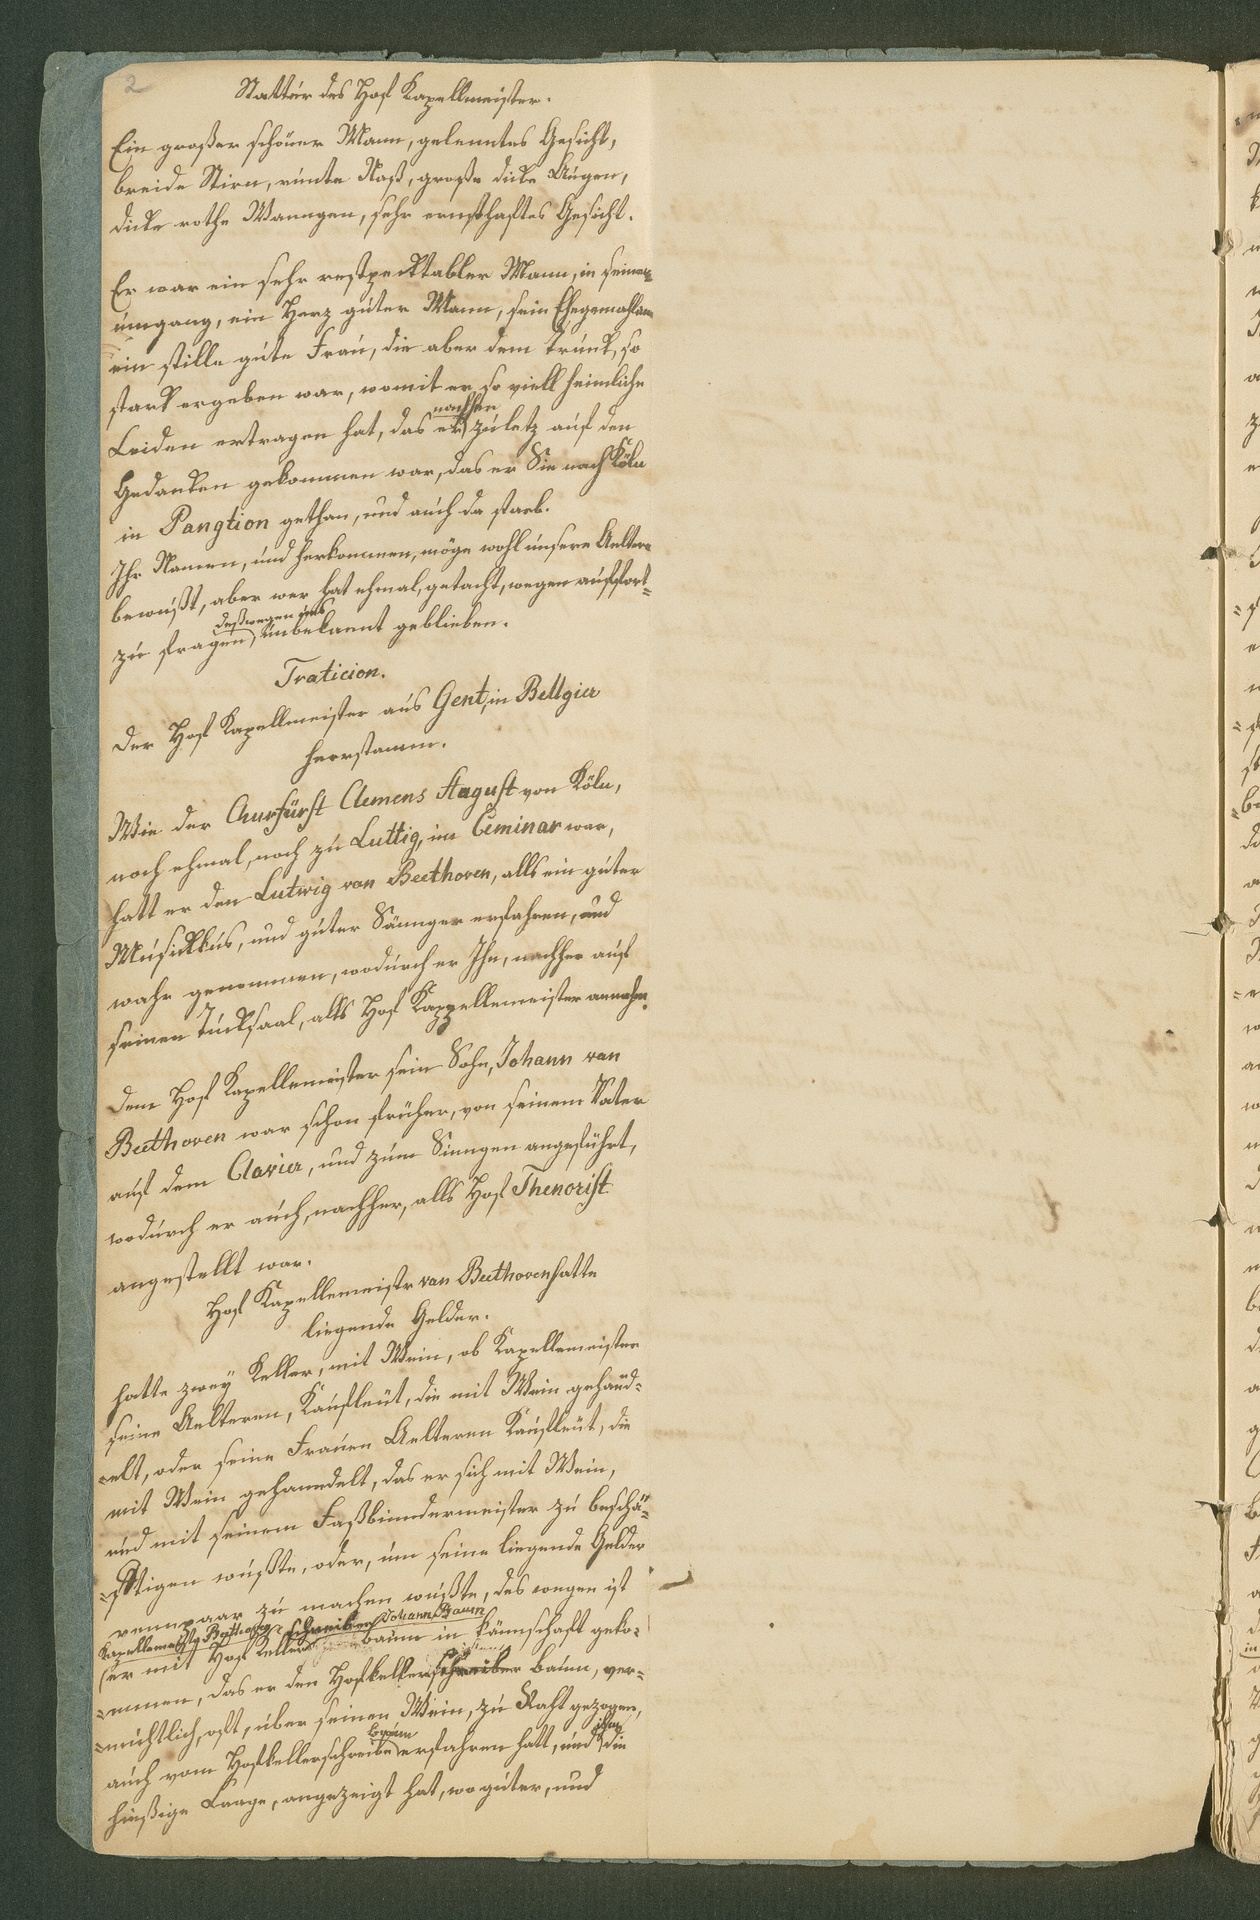 2
Stattuir des Hof Kapellmeister.
Ein großer schöner Mann, gelenntes Gesicht,
breide Stirn, runte Naß, große dicke Augen,
dicke rothe Wanngen, sehr ernsthaftes Gesicht.
Er war ein sehr restpecktabler Mann, in seinem
umgang, ein Herz guter Mann, sein Ehegemahlann
ein stille gute Frau, die aber dem Trunk, so
stark ergeben war, womit er so viell heimliche
nachher
Leiden ertragen hat, das er zuletz auf den
Gedanken gekommen war, das er Sie nach Köln
in Pangtion gethan, und auch da starb.
Ihr Namen, und herkommen, möge wohl unsere Aeltern
bewußt, aber wer hat ehmal, getacht, wegen aufsfort-
deßwegen uns
zu fragen, unbekannt geblieben.
Traticion.
Der Hof Kapellmeister aus Gent, in Bellgien
herrstamm.
Wie der Churfürst Clemens August von Köln,
noch ehmal, noch zu Luttig, im Ceminar war,
hatt er den Lutwig van Beethoven, alls ein guter
Musickkus, und guter Sännger erfahren, und
wahr genommen, wodurch er Ihn, nachher auf
seinen Tucksaal, alls Hof Kappellemeister annahm.
Dem Hof Kapellemeister sein Sohn, Johann van
Beethoven war schon früher, von seinem Vater
auf dem Clavier, und zum Sinngen angeführt,
wodurch er auch, nachher, alls Hof Thenorist
angestellt war.
Hof Kapellemeistr van Beethoven hatte
liegende Gelder.
hatte zwey Keller, mit Wein, ob Kapellemeister
seine Aelteren, Kaufleüt, die mit Wein gehand-
-elt, oder seine Frauen Aelteren Kaufleüt, die
mit Wein gehanndelt, das er sich mit Wein,
und mit seinem Faßbinndermeister zu beschä-
-fttigen wußte, oder, um seine liegende Gelder
rennpaar zu machen wußte, des wegen ist
Kapellemeistr Beethoven schreiber Johann Baum
er mit Hof Keller baum in kännschaft geko-
-mmen, das er den Hofkellerschreiber baum, ver-
-muthlich, oft, über seinen Wein, zu Raht gezogen,
baum ihm
auch vom Hofkellerschreiber erfahren hatt, und die
hießige Laage, angezeigt hat, wo guter, und